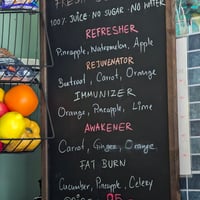 FRESH
100% JUICE · NO SUGAR · NO WATER
REFRESHER
Pineapple, Watermelon, Apple
REJUVENATOR
Beetroot, Carrot, Orange
IMMUNIZER
Orange, Pineapple, Lime
AWAKENER
Carrot, Ginger, Orange
FAT BURN
Cucumber, Pineapple, Celery